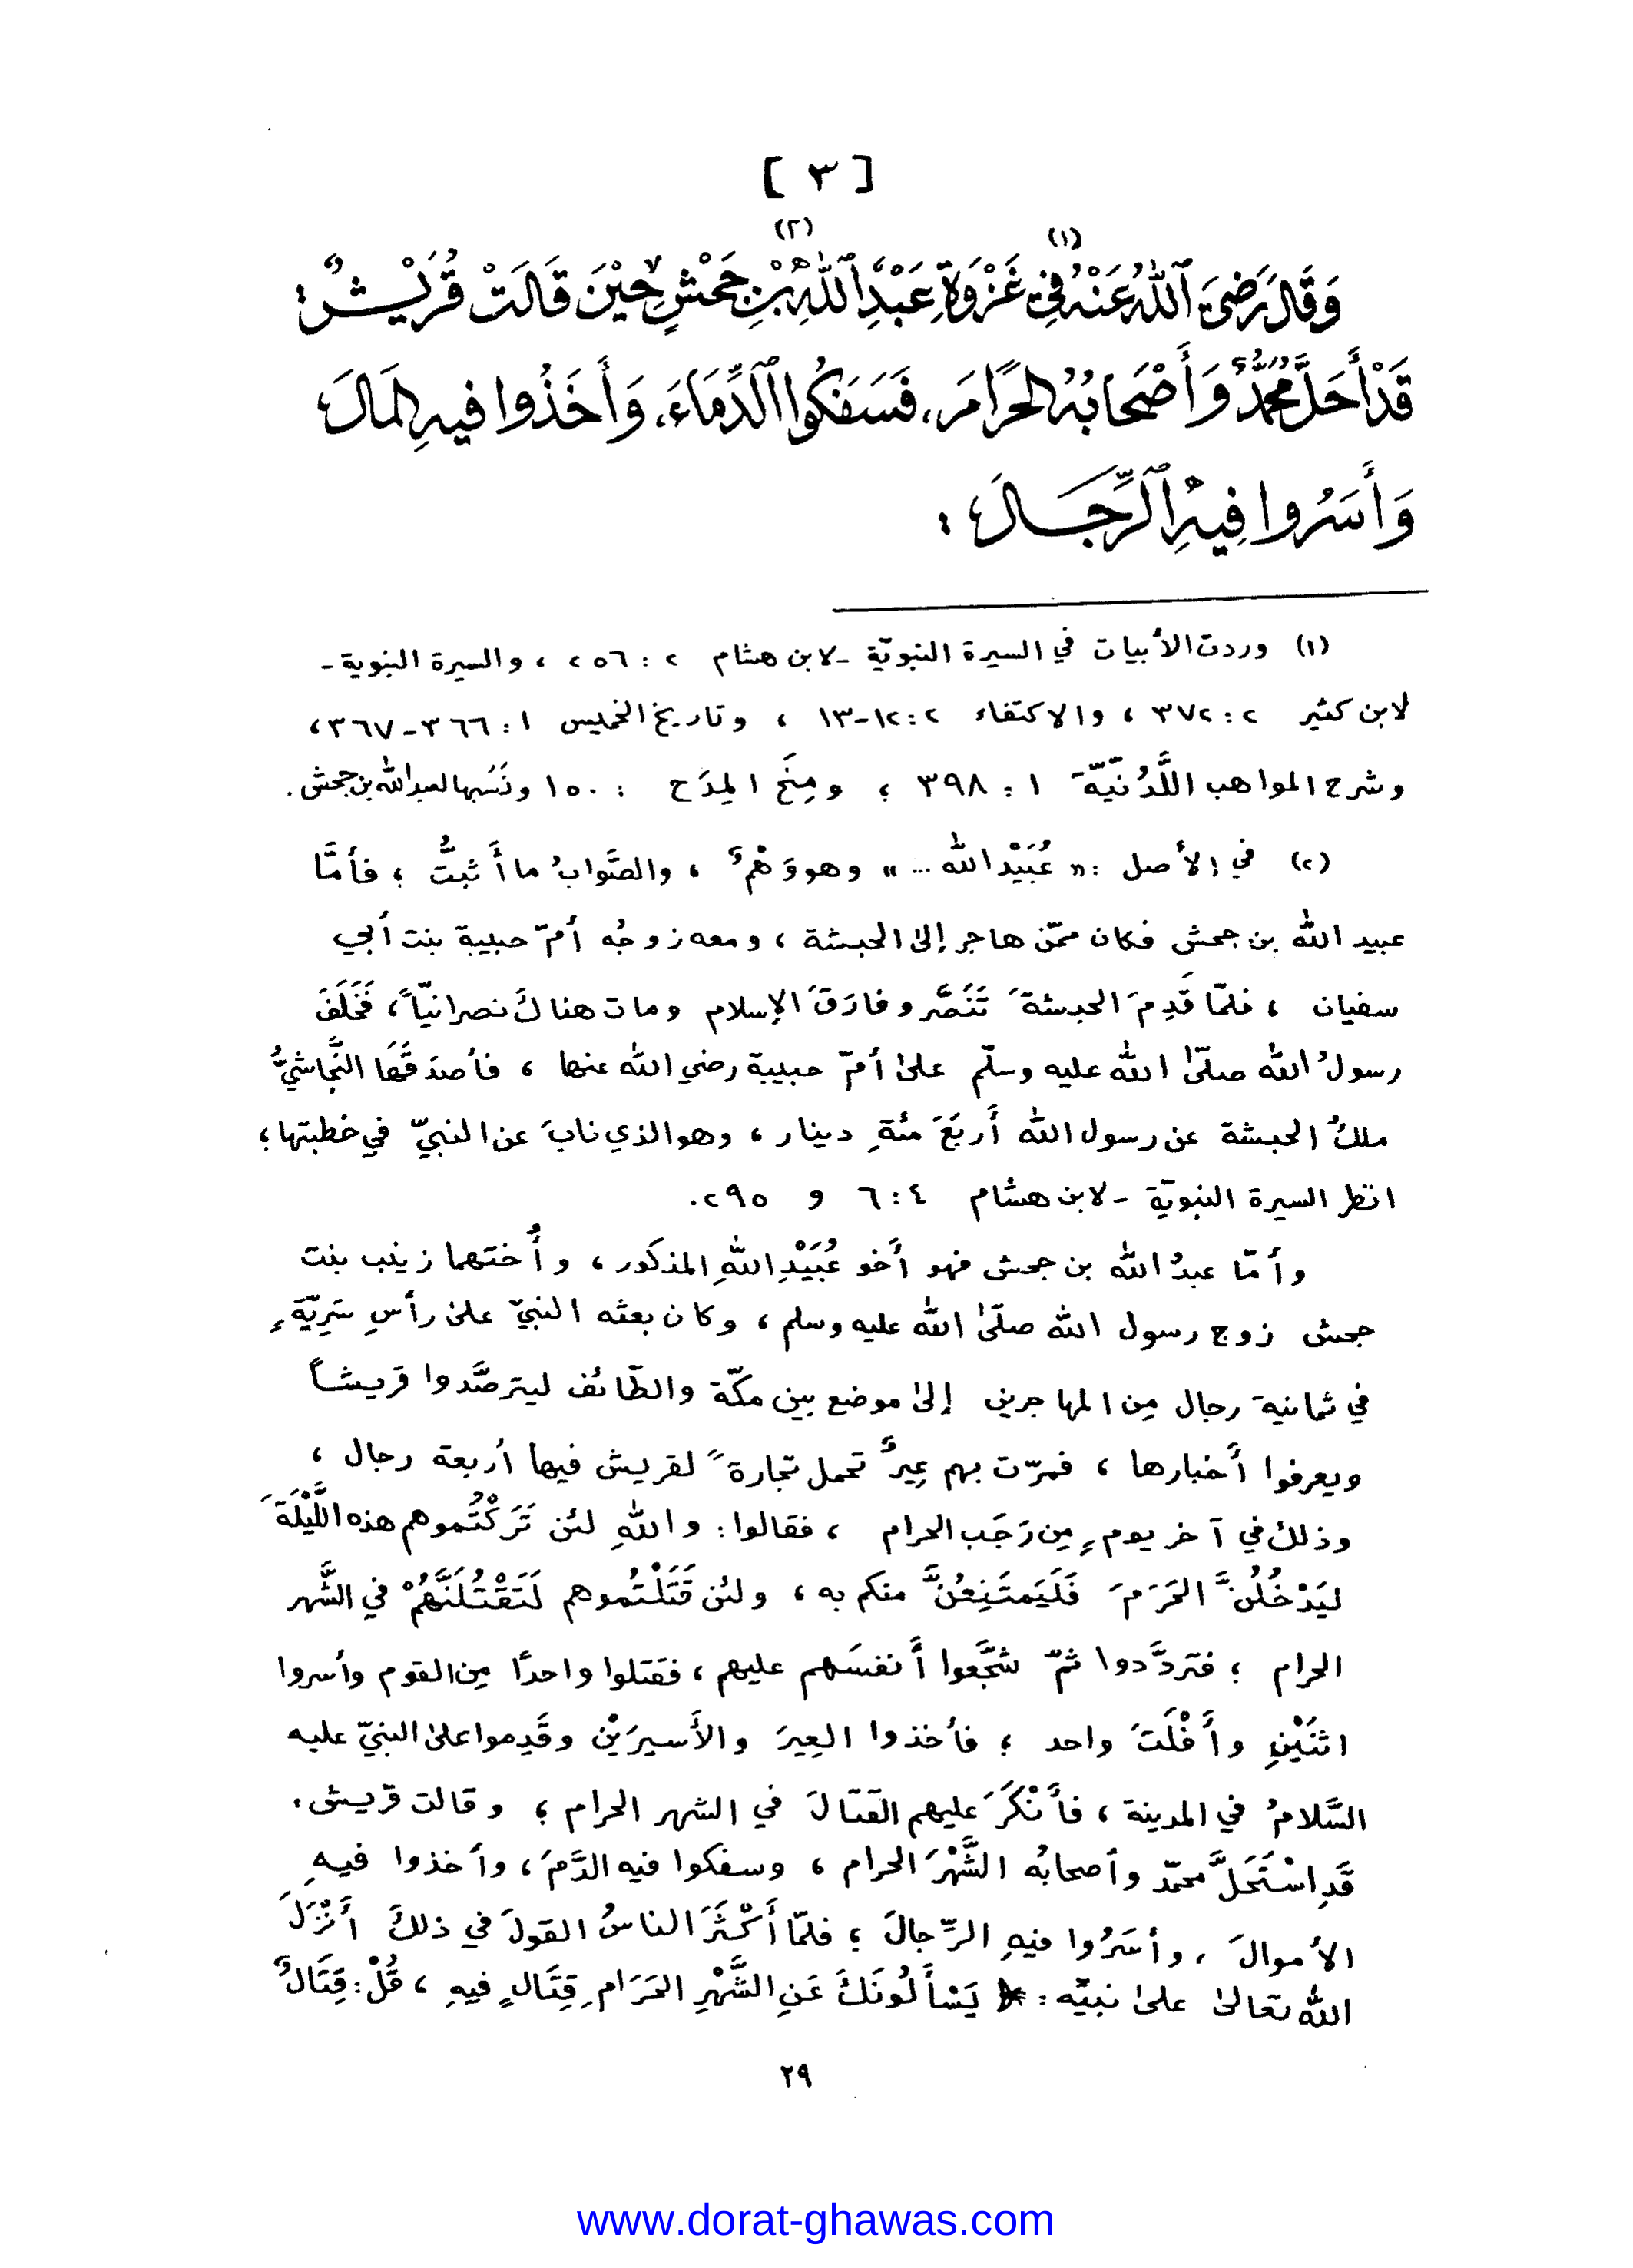 [ ٣ ]
وَقَالَ رَضِيَ ٱللّٰهُ عَنْهُ (١) فِي غَزْوَةِ عَبْدِ ٱللّٰهِ (٢) بْنِ جَحْشٍ حِيْنَ قَالَتْ قُرَيْشٌ :
قَدْ أَحَلَّ مُحَمَّدٌ وَأَصْحَابُهُ الحَرَامَ ، فَسَفَكُوا ٱلدِّمَاءَ ، وَأَخَذُوا فيهِ المَالَ
وَأَسَرُوا فِيهِ ٱلرِّجَالَ :
(١) وردت الأبيات في السيرة النبويّة - لابن هشام ٢ : ٢٥٦ ، والسيرة النبوية -
لابن كثير ٢ : ٣٧٢ ، والاكتفاء ٢ : ١٢-١٣ ، وتاريخ الخميس ١ : ٣٦٦-٣٦٧ ،
وشرح المواهب اللَّدُنِّيَّة ١ : ٣٩٨ ؛ ومِنَح المِدَح : ١٥٠ ونَسَبها لعبد الله بن جحش .
(٢) في الأصل : « عُبَيْد الله ... » وهو وَهْمٌ ، والصَّوابُ ما أَثبتُّ ؛ فأمَّا
عبيد الله بن جحش فكان ممّن هاجر إلىٰ الحبشة ، ومعه زوجُه أمّ حبيبة بنت أبي
سفيان ، فلمّا قَدِمَ الحبشةَ تَنَصَّر وفارَقَ الإسلام ومات هناكَ نصرانيّاً ، فَخَلَفَ
رسولُ الله صلّىٰ الله عليه وسلّم علىٰ أمّ حبيبة رضي الله عنها ، فأصدَقَهَا النَّجاشيُّ
ملكُ الحبشة عن رسول الله أَربَعَ مئةِ دينار ، وهو الذي نابَ عن النبيّ في خطبتها ؛
انظر السيرة النبويّة - لابن هشام ٤ : ٦ و ٢٩٥ .
وأمّا عبدُ الله بن جحش فهو أَخو عُبَيْدِ اللهِ المذكور ، وأُختهما زينب بنت
جحش زوج رسول الله صلّىٰ الله عليه وسلم ، وكان بعثه النبيّ علىٰ رأسِ سَرِيّةٍ
في ثمانيةَ رجال مِن المهاجرين إلىٰ موضع بين مكّة والطّائف ليترصَّدوا قريشاً
ويعرفوا أَخبارها ، فمرّت بهم عِيرٌ تحمل تجارةً لقريش فيها أربعة رجال ،
وذلك في آخر يومٍ مِن رَجَب الحرام ، فقالوا : واللهِ لئن تَرَكْتُموهم هذه اللَّيْلَةَ
ليَدْخُلُنَّ الحَرَمَ فَلَيَمتَنِعُنَّ منكم به ، ولئن قَتَلْتُموهم لَتَقْتُلَنَّهُمْ في الشَّهر
الحرام ؛ فتردَّدوا ثمّ شجَّعوا أَنفسَهم عليهم ، فقتلوا واحدًا مِن القوم وأسروا
اثنَيْنِ وأَفْلَتَ واحد ؛ فأخذوا العِيرَ والأَسيرَيْن وقَدِموا علىٰ النبيّ عليه
السَّلامُ في المدينة ، فأَنْكَرَ عليهم القتالَ في الشهر الحرام ؛ وقالت قريش ،
قَدِ اسْتَحَلَّ محمّد وأصحابُه الشَّهْرَ الحرام ، وسفكوا فيه الدَّمَ ، وأخذوا فيهِ
الأموالَ ، وأسَرُوا فيهِ الرِّجالَ ؛ فلمّا أَكْثَرَ الناسُ القولَ في ذلكَ أَنْزَلَ
اللهُ تعالىٰ علىٰ نبيّه : ﴿ يَسْأَلُونَكَ عَنِ الشَّهْرِ الحَرَامِ قِتَالٍ فيهِ ، قُلْ : قِتَالٌ
٢٩
www.dorat-ghawas.com